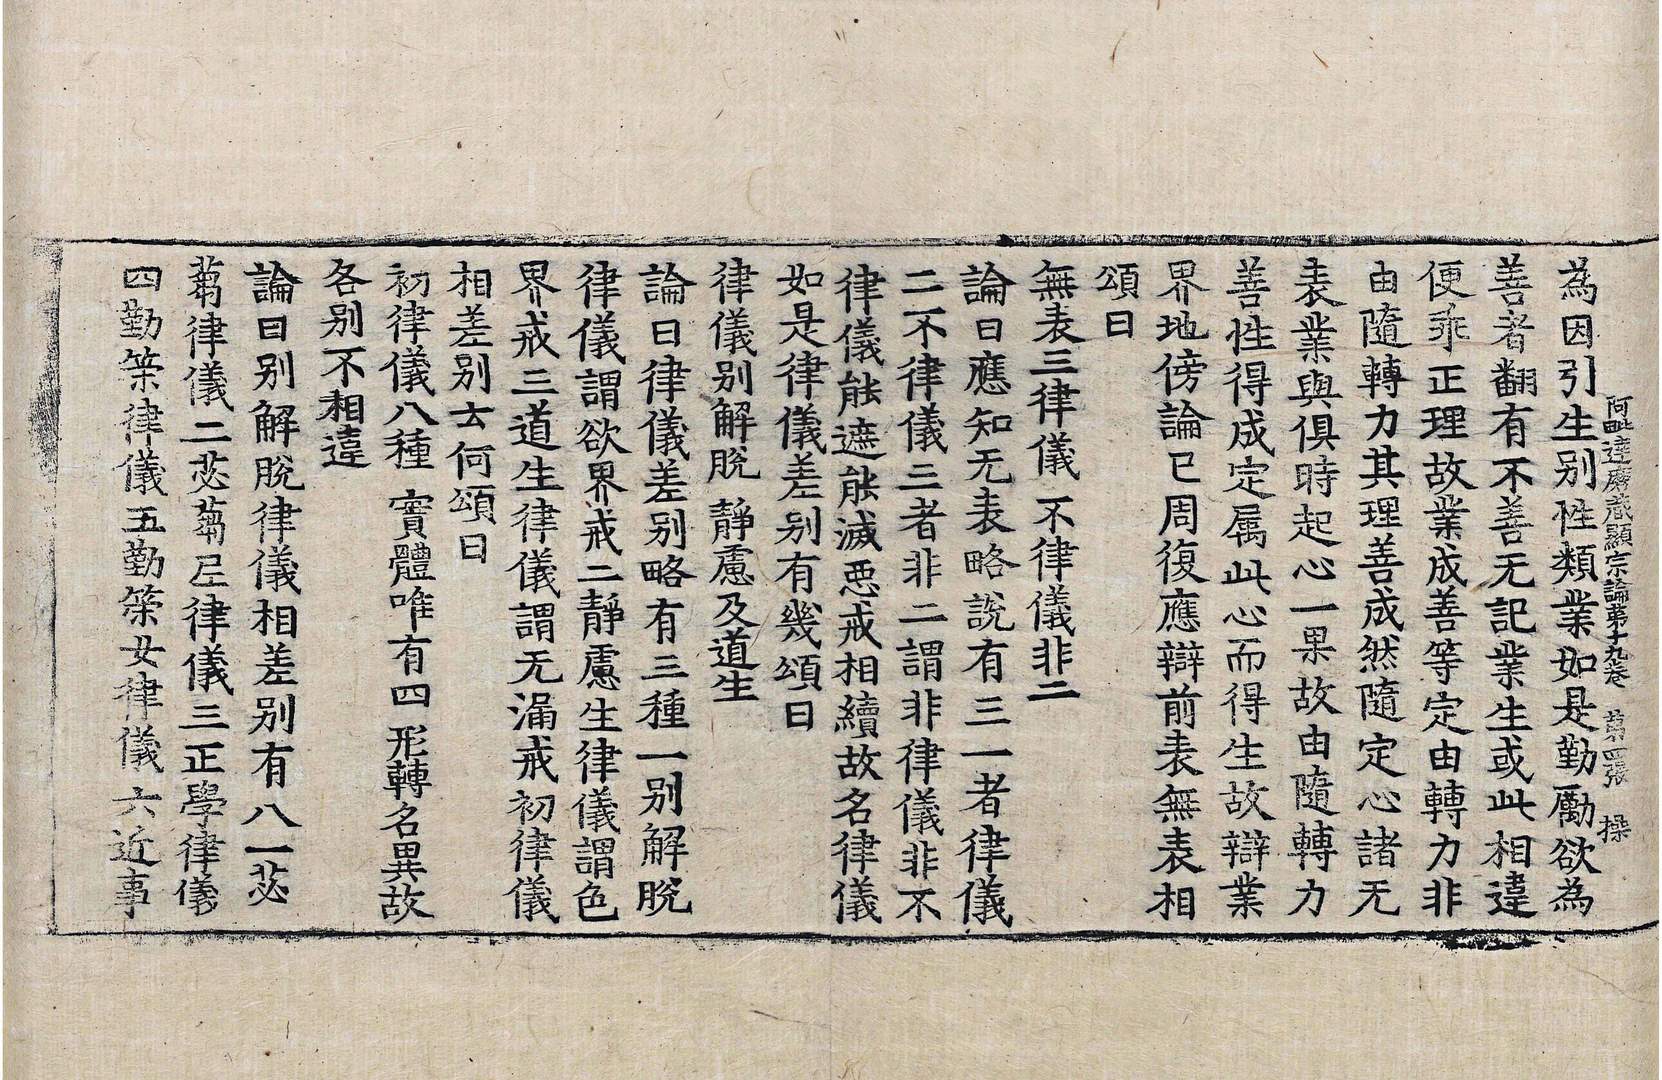 阿毗達磨藏顯宗論第十九卷 第四張 操
為因引生別性類業如是勤勵欲為
善者翻有不善无記業生或此相違
便乖正理故業成善等定由轉力非
由隨轉力其理善成然隨定心諸无
表業與俱時起心一果故由隨轉力
善性得成定属此心而得生故辯業
界地傍論已周復應辯前表無表相
頌曰
無表三律儀 不律儀非二
論曰應知无表略說有三一者律儀
二不律儀三者非二謂非律儀非不
律儀能遮能滅惡戒相續故名律儀
如是律儀差別有幾頌曰
律儀別解脫 靜慮及道生
論曰律儀差別略有三種一別解脫
律儀謂欲界戒二靜慮生律儀謂色
界戒三道生律儀謂无漏戒初律儀
相差別云何頌曰
初律儀八種 實體唯有四 形轉名異故
各別不相違
論曰別解脫律儀相差別有八一苾
蒭律儀二苾蒭尼律儀三正學律儀
四勤策律儀五勤策女律儀六近事